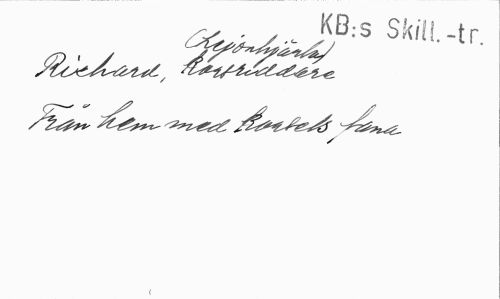 KB:s Skill.-tr.
(Lejonhjärta)
Richard, Korsriddare
Från hem med korsets fana